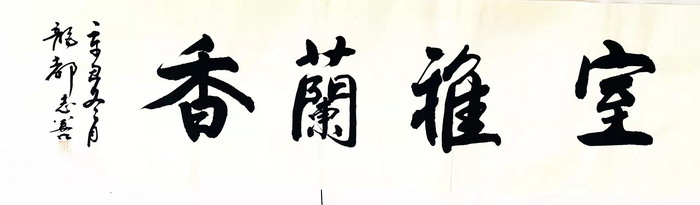 室雅蘭香
辛丑冬月
龍都志善